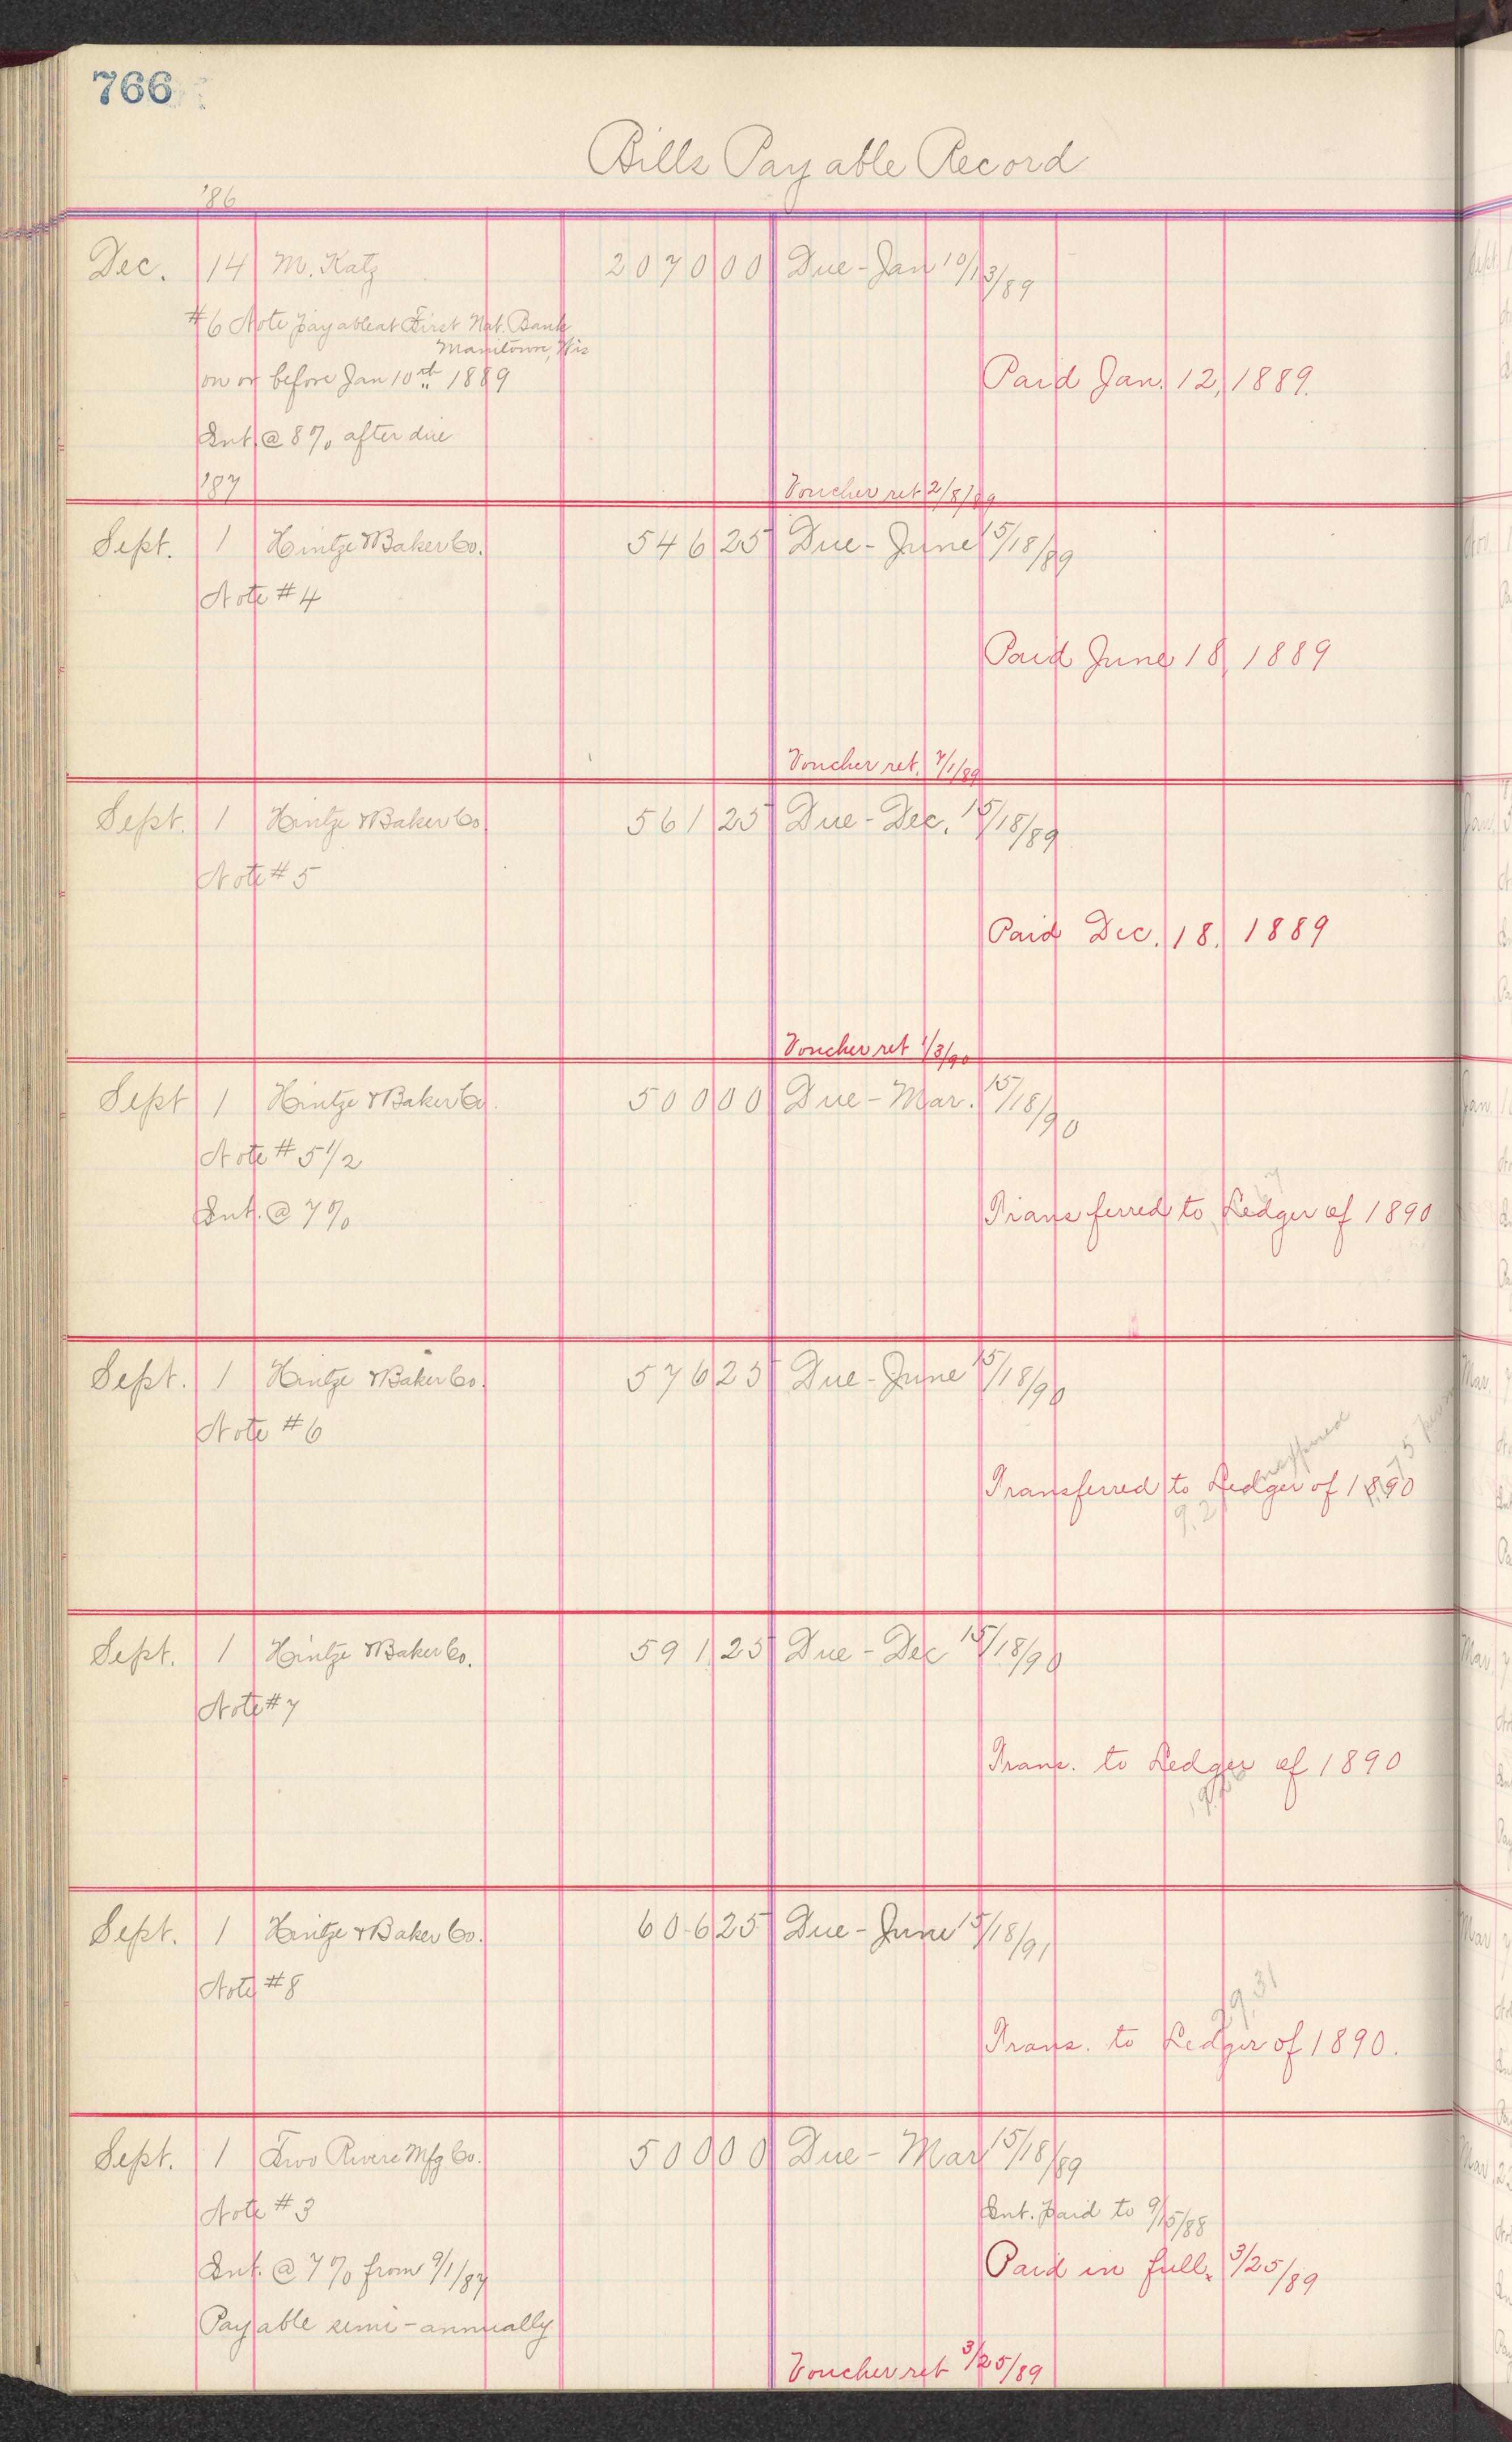 766
Bills Payable Record
'86
Dec. 14 M. Katz 2070 00 Due - Jan 10/13/89
#6 Note payable at First Nat. Bank
Manitowoc, Wis
on or before Jan 10th 1889
Paid Jan. 12, 1889.
Int. @ 8% after due
'87
Voucher ret 2/8/89
Sept. 1 Hintze & Baker Co. 546 25 Due - June 15/18/89
Note #4
Paid June 18, 1889
Voucher ret. 7/1/89
Sept. 1 Hintze & Baker Co 561 25 Due - Dec. 15/18/89
Note #5
Paid Dec. 18, 1889
Voucher ret 1/3/90
Sept 1 Hintze & Baker Co. 500 00 Due - Mar. 15/18/90
Note #5 1/2
Int. @ 7%
Transferred to Ledger of 1890
Sept. 1 Hintze & Baker Co. 576 25 Due - June 15/18/90
Note #6
Transferred to Ledger of 1890
9.2
Sept. 1 Hintze & Baker Co. 591 25 Due - Dec 15/18/90
Note #7
Trans. to Ledger of 1890
Sept. 1 Hintze & Baker Co. 606 25 Due - June 15/18/91
Note #8
Trans. to Ledger of 1890.
Sept. 1 Two Rivers Mfg Co. 500 00 Due - Mar 15/18/89
Note #3
Int. paid to 9/15/88
Int. @ 7% from 9/1/87
Paid in full. 3/25/89
Payable semi-annually
Voucher ret 3/25/89